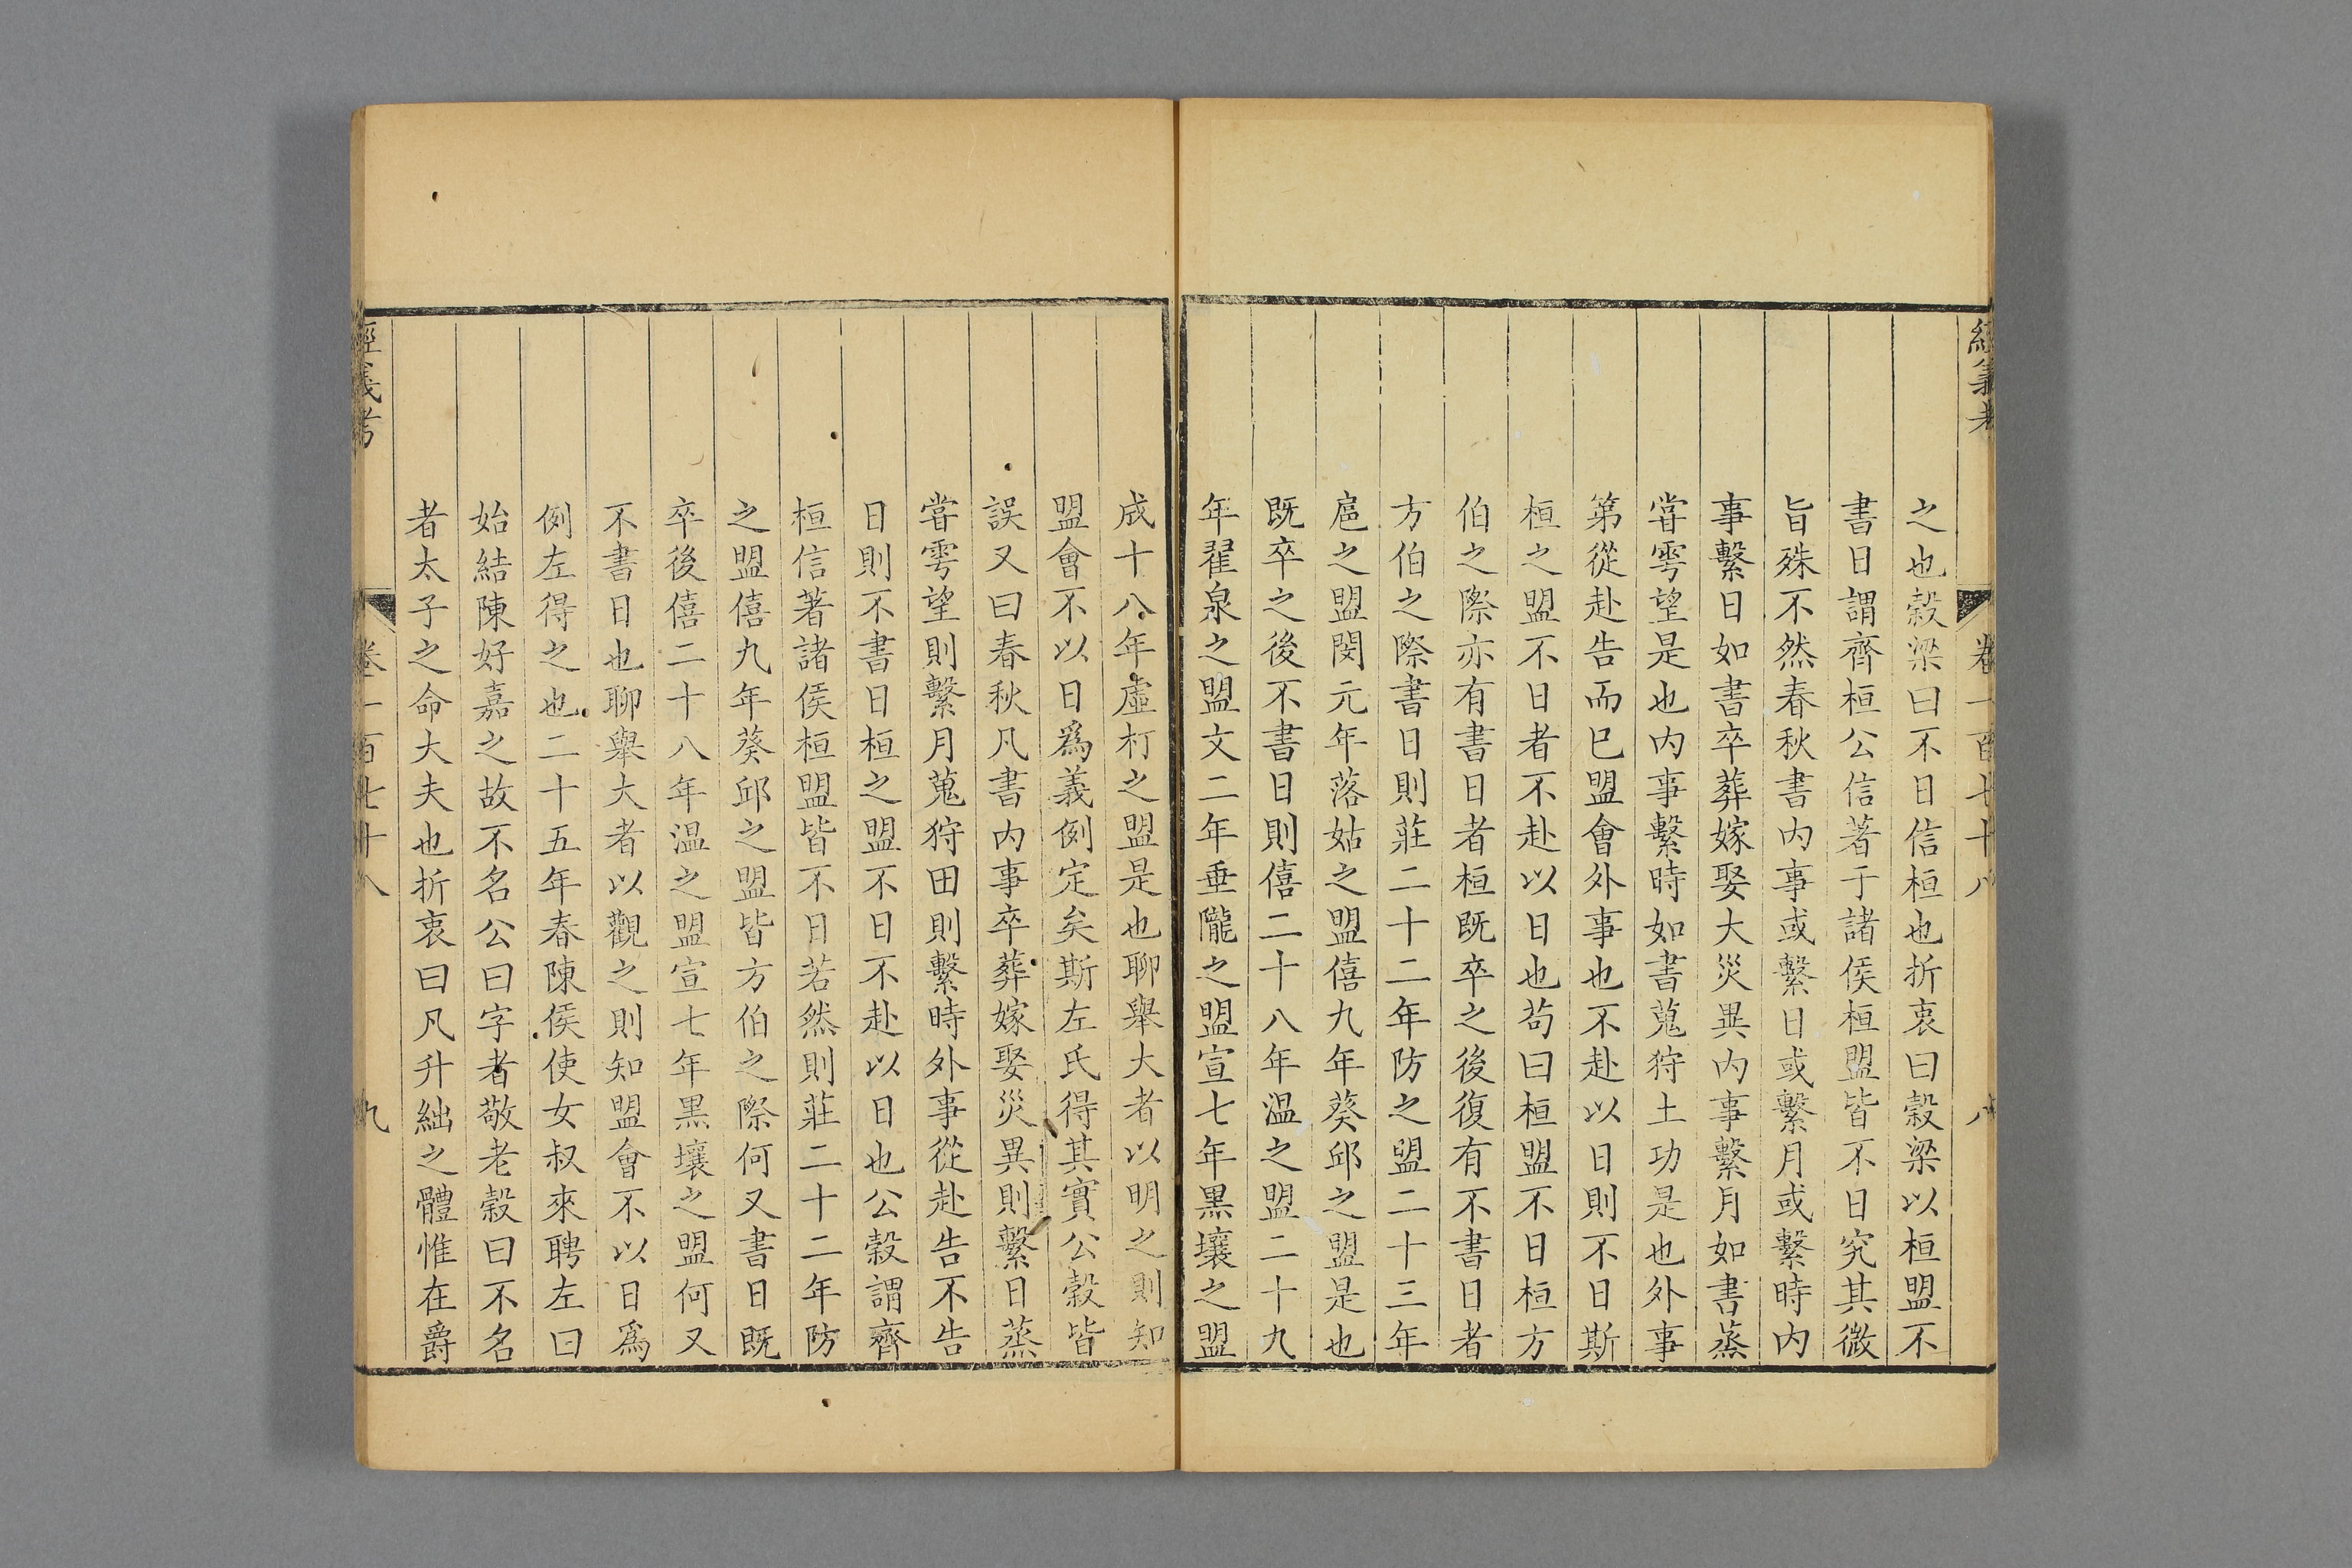 經義考
卷一百七十八
八
之也榖梁曰不日信桓也折衷曰榖梁以桓盟不
書日謂齊桓公信著于諸侯桓盟皆不日究其微
旨殊不然春秋書内事或繫日或繫月或繫時内
事繫日如書卒葬嫁娶大災異内事繫月如書蒸
甞雩望是也内事繫時如書蒐狩土功是也外事
第從赴告而已盟會外事也不赴以日則不日斯
桓之盟不日者不赴以日也茍曰桓盟不日桓方
伯之際亦有書日者桓既卒之後復有不書日者
方伯之際書日則莊二十二年防之盟二十三年
扈之盟閔元年落姑之盟僖九年葵邱之盟是也
既卒之後不書日則僖二十八年温之盟二十九
年翟泉之盟文二年垂隴之盟宣七年黒壤之盟
成十八年虛朾之盟是也聊舉大者以明之則知
盟會不以日爲義例定矣斯左氏得其實公榖皆
誤又曰春秋凡書内事卒葬嫁娶災異則繫日蒸
甞雩望則繫月蒐狩田則繫時外事從赴告不告
日則不書日桓之盟不日不赴以日也公榖謂齊
桓信著諸侯桓盟皆不日若然則莊二十二年防
之盟僖九年葵邱之盟皆方伯之際何又書日既
卒後僖二十八年温之盟宣七年黒壤之盟何又
不書日也聊舉大者以觀之則知盟會不以日爲
例左得之也二十五年春陳侯使女叔來聘左曰
始結陳好嘉之故不名公曰字者敬老榖曰不名
者太子之命大夫也折衷曰凡升絀之體惟在爵
經義考
卷一百七十八
九